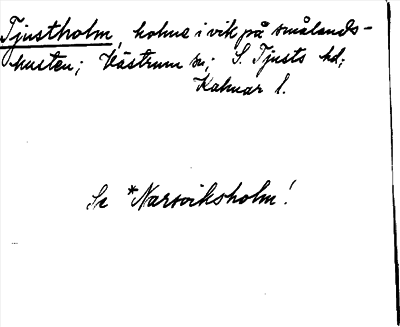 Tjustholm, holme i vik på smålands-
kusten; Västrum sn; S. Tjusts hd;
Kalmar l.
Se *Narviksholm!